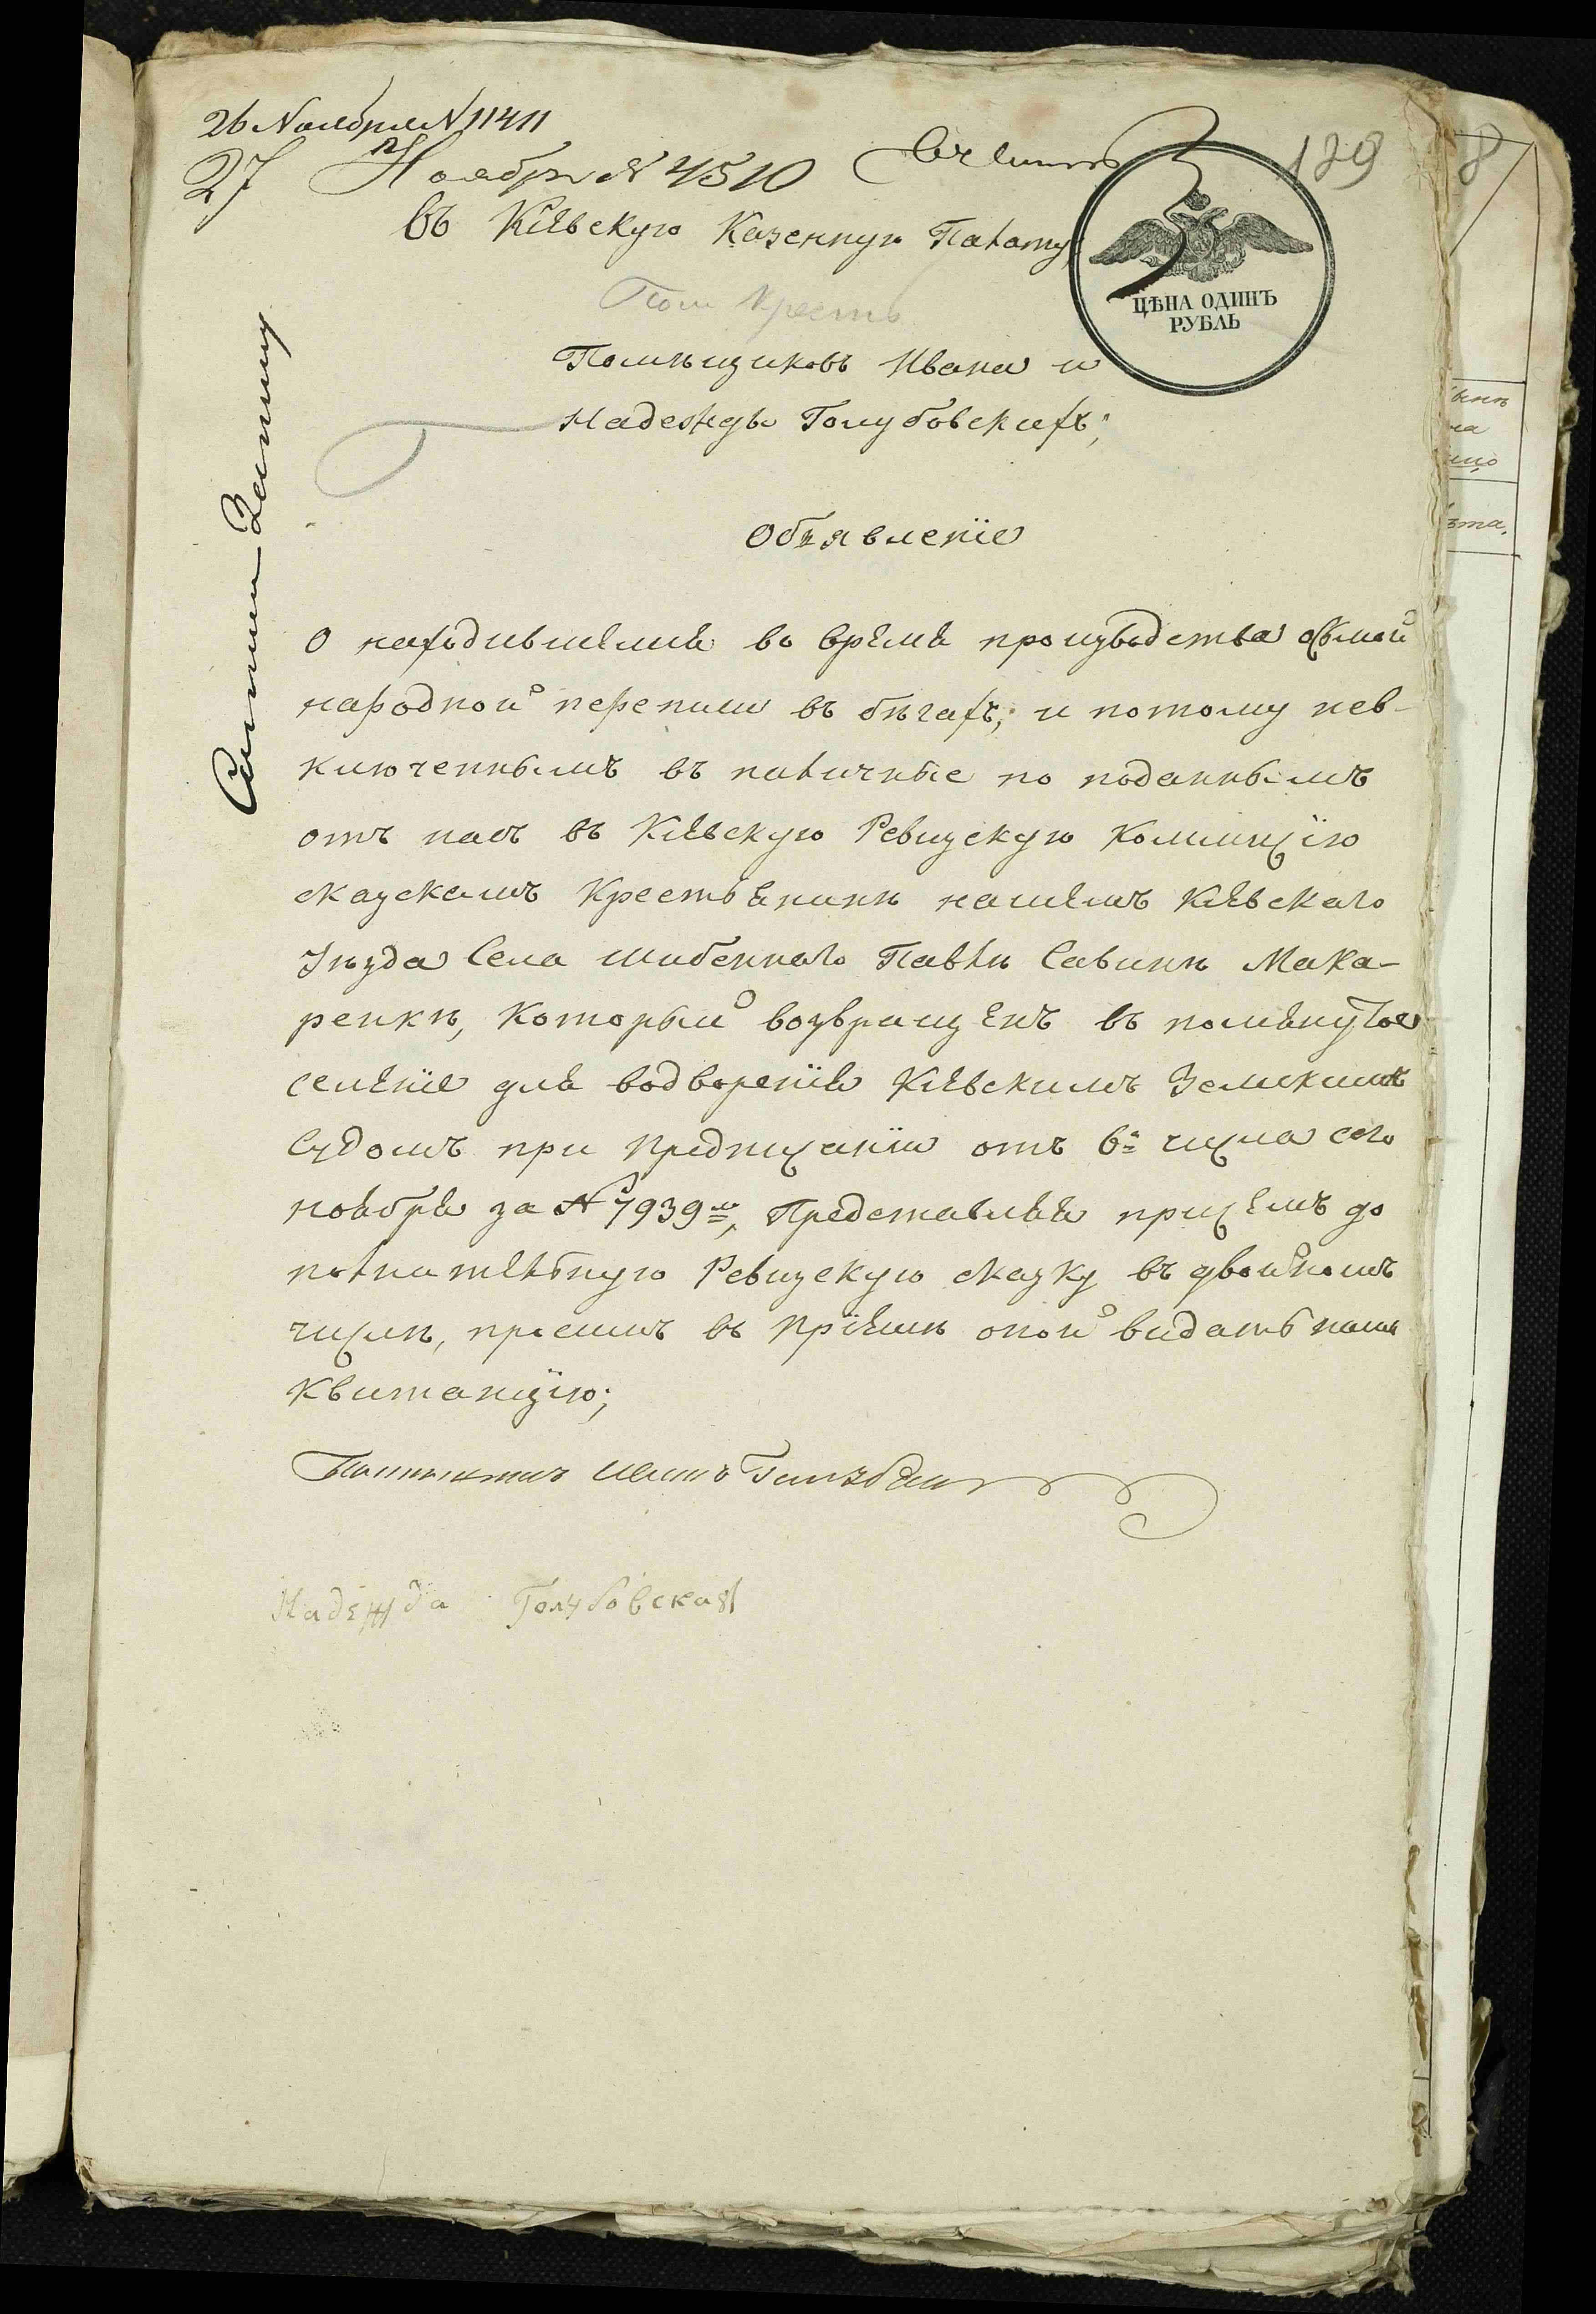 26 Ноября N 11411
27 Ноября № 4510
129
8
Въ Кіевскую Казенную Палату;
ЦѢНА ОДИНЪ
РУБЛЬ
Пом Крест
Помѣщиковъ Ивана и
Надежды Голубовскихъ;
Объявленіе
О находившемся во время произведства осьмой
народной переписи въ бѣгахъ; и потому нев-
ключеннымъ въ наличные по поданнымъ
отъ насъ въ Кіевскую Ревизскую Коммисію
сказскамъ Крестьянинѣ нашемъ Кіевскаго
Уѣзда Села Шибеннаго Павлѣ Савинѣ Мака-
ренкѣ, который возвращенъ въ помянутое
селеніе для водворенія Кіевскимъ Земскимъ
Судомъ при предписаніи отъ 6го числа сего
ноября за № 7939м, Представляя присемъ до
полнительную Ревизскую сказку въ двойномъ
числѣ, просимъ въ пріемѣ оной видать намъ
Квитанцію;
Помѣщикъ Иванъ Голубовскій
Надежда Голубовская